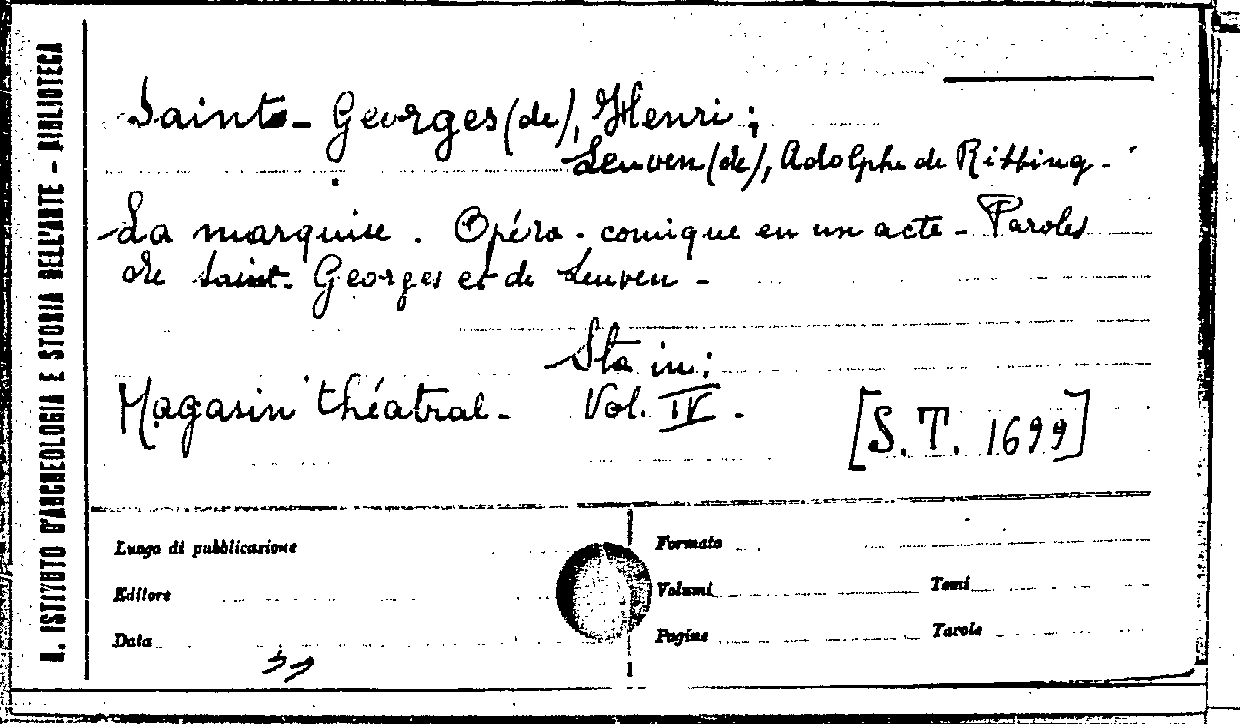 R. ISTITUTO D'ARCHEOLOGIA E STORIA DELL'ARTE - BIBLIOTECA
Saint-Georges (de), Henri;
Leuven (de), Adolphe de Ribbing -
La marquise. Opéra-comique en un acte - Paroles
de Saint-Georges et de Leuven -
Sta in:
Magasin théatral - Vol. IV.
[S. T. 1699]
Luogo di pubblicazione
Formato
Editore
Volumi Tomi
Data
Pagine Tavole